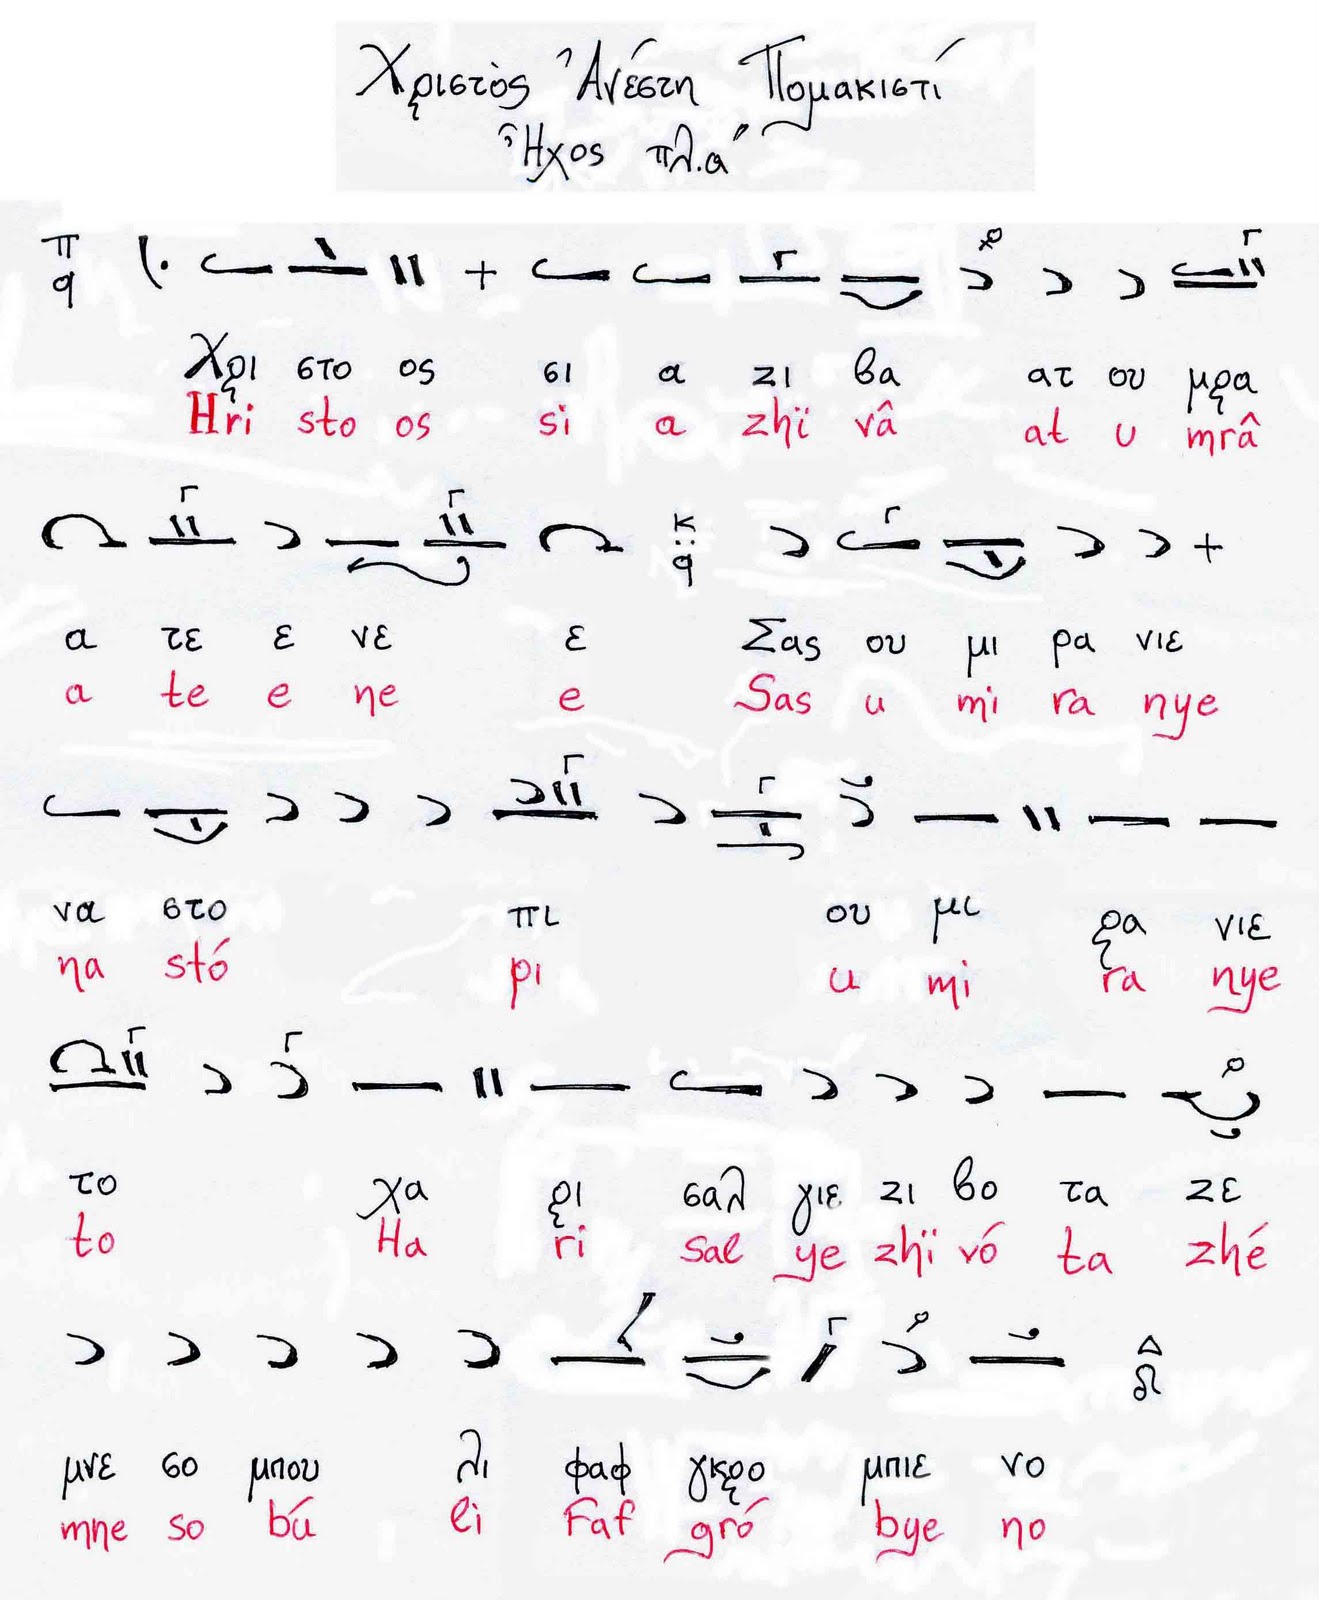 Χριστὸς Ἀνέστη Πομακιστί
Ἦχος πλ.α΄
Χρι στο ος σι α ζι βα ατ ου μρα
Hri sto os si a zhï vâ at u mrâ
α τε ε νε ε Σας ου μι ρα νιε
a te e ne e Sas u mi ra nye
να στο πι ου μι ρα νιε
na stó pi u mi ra nye
το χα ρι σαλ γιε ζι βο τα ζε
to Ha ri sal ye zhï vó ta zhé
μνε σο μπου λι φαφ γκρο μπιε νο
mne so bú li Faf gró bye no